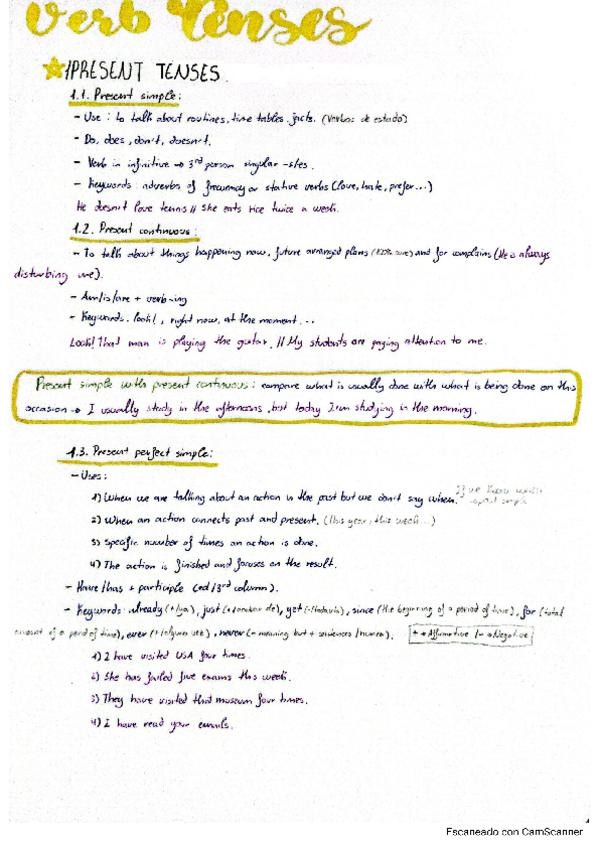 Verb Tenses
1PRESENT TENSES.
1.1. Present simple:
- Use: to talk about routines, time tables, facts. (Verbos de estado)
- Do, does, don't, doesn't.
- Verb in infinitive → 3rd person singular -s/es.
- Keywords: adverbs of frecuency or stative verbs (love, hate, prefer...)
He doesn't love tennis // She eats rice twice a week.
1.2. Present continuous:
- To talk about things happening now, future arranged plans (100% sure) and for complains (He is always
disturbing me).
- Am/is/are + verb-ing
- Keywords: look!, right now, at the moment...
Look! That man is playing the guitar. // My students are paying attention to me.
Present simple with present continuous: compare what is usually done with what is being done on this
occasion → I usually study in the afternoons, but today I am studying in the morning.
1.3. Present perfect simple:
- Uses:
1) When we are talking about an action in the past but we don't say when. If we know when
→ past simple
2) When an action connects past and present. (This year, this week...)
3) Specific number of times an action is done.
4) The action is finished and focuses on the result.
- Have/has + participle (ed/3rd column).
- Keywords: already (+/ya), just (+/acabar de), yet (-/todavía), since (the beginning of a period of time), for (total
amount of a period of time), ever (+/alguna vez), never (- meaning but + sentences/nunca). + → Affirmative / - → Negative
1) I have visited USA four times.
2) She has failed five exams this week.
3) They have visited that museum four times.
4) I have read your emails.
Escaneado con CamScanner